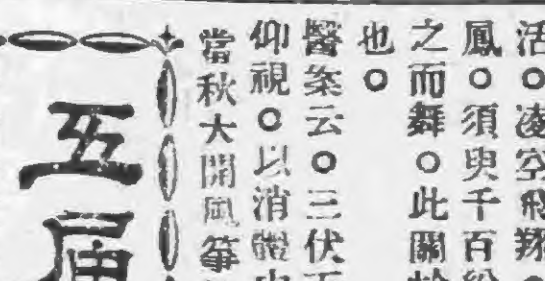 活○凌空飛翔
鳳○須與千百
之而舞○此關
也○
醫案云○三伏
仰視○以消體
當秋大開風箏
五屆